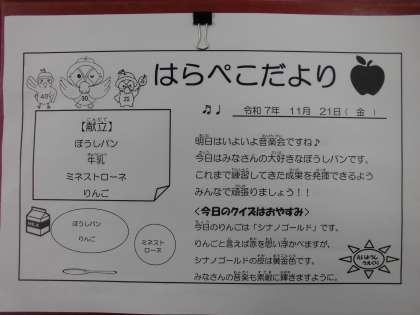 はらぺこだより
令和7年 11月 21日( 金 )
【献立】
ぼうしパン
牛乳
ミネストローネ
りんご
ぼうしパン
りんご
ミネスト
ローネ
明日はいよいよ音楽会ですね♪
今日はみなさんの大好きなぼうしパンです。
これまで練習してきた成果を発揮できるよう
みんなで頑張りましょう！！
<今日のクイズはおやすみ>
今日のりんごは「シナノゴールド」です。
りんごと言えば赤を思い浮かべますが、
シナノゴールドの皮は黄金色です。
みなさんの音楽も素敵に輝きますように。